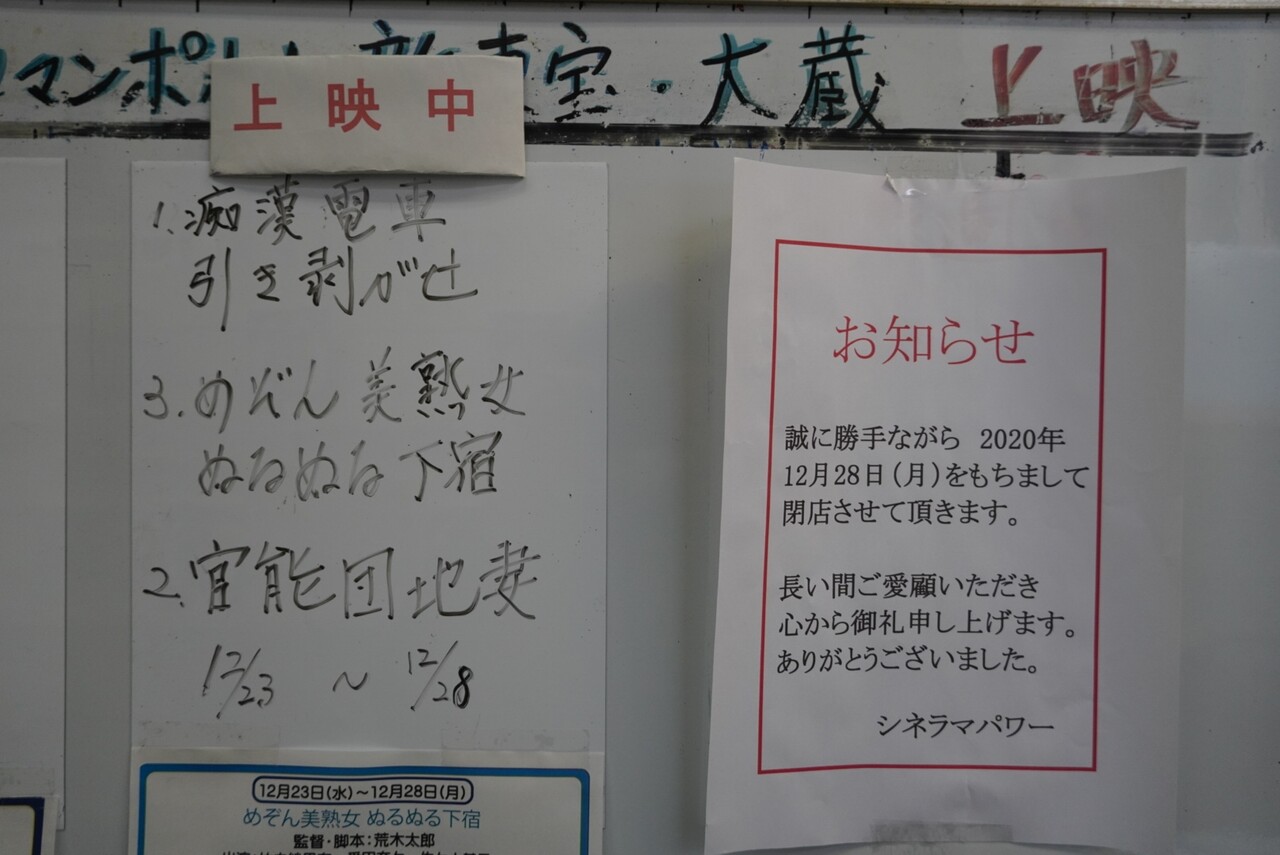 マンポ
宝・大蔵 上映
上映中
1.痴漢電車
引き剥がせ
3.めぞん美熟女
ぬるぬる下宿
2.官能団地妻
12/23 ～ 12/28
12月23日(水)～12月28日(月)
めぞん美熟女 ぬるぬる下宿
監督・脚本：荒木太郎
お知らせ
誠に勝手ながら 2020年
12月28日(月)をもちまして
閉店させて頂きます。
長い間ご愛顧いただき
心から御礼申し上げます。
ありがとうございました。
シネラマパワー